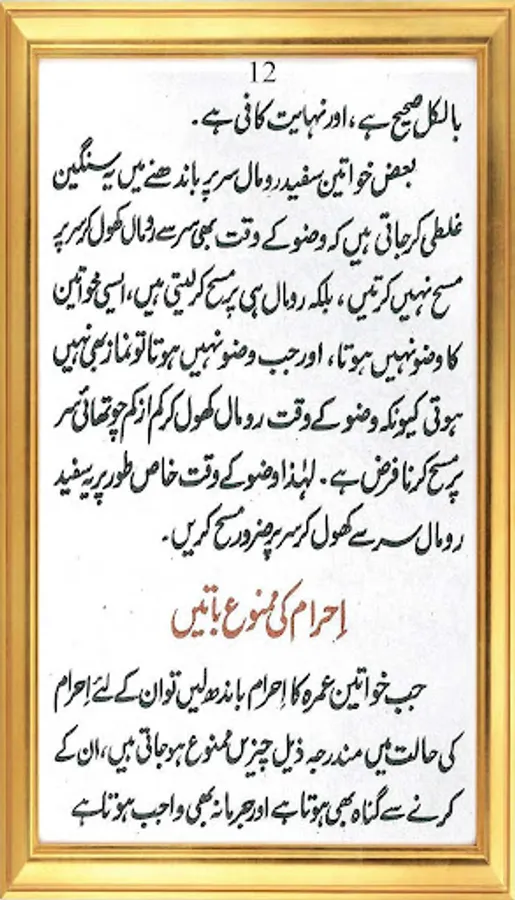 12
بالکل صحیح ہے، اور نہایت کافی ہے۔
بعض خواتین سفید رومال سر پر باندھنے میں یہ سنگین
غلطی کر جاتی ہیں کہ وضو کے وقت بھی سر سے رومال کھول کر سر پر
مسح نہیں کرتیں، بلکہ رومال ہی پر مسح کر لیتی ہیں، ایسی خواتین
کا وضو نہیں ہوتا، اور جب وضو نہیں ہوتا تو نماز بھی نہیں
ہوتی کیونکہ وضو کے وقت رومال کھول کر کم از کم چوتھائی سر
پر مسح کرنا فرض ہے۔ لہٰذا وضو کے وقت خاص طور پر یہ سفید
رومال سر سے کھول کر سر پر ضرور مسح کریں۔
اِحرام کی ممنوع باتیں
جب خواتین عمرہ کا اِحرام باندھ لیں تو ان کے لئے اِحرام
کی حالت میں مندرجہ ذیل چیزیں ممنوع ہو جاتی ہیں، ان کے
کرنے سے گناہ بھی ہوتا ہے اور جرمانہ بھی واجب ہوتا ہے